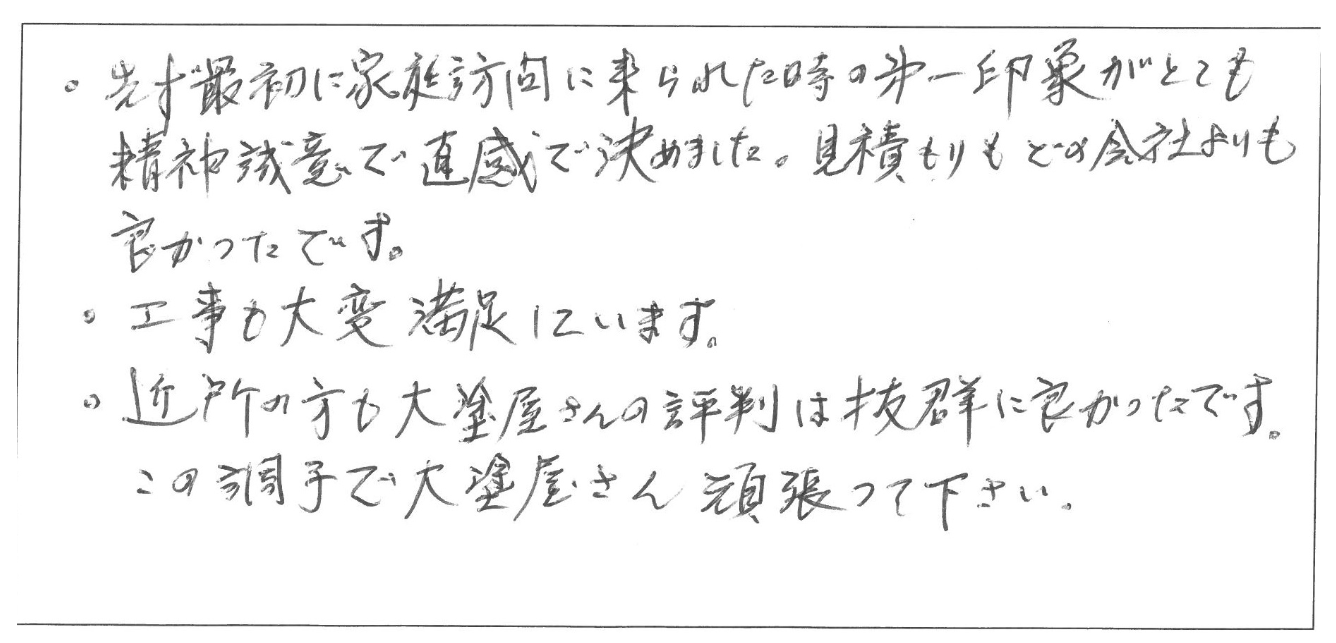 。先ず最初に家庭訪問に来られた時の第一印象がとても
精神誠意で直感で決めました。見積もりもどの会社よりも
良かったです。
。工事も大変満足しています。
。近所の方も大塗屋さんの評判は抜群に良かったです。
この調子で大塗屋さん頑張って下さい。